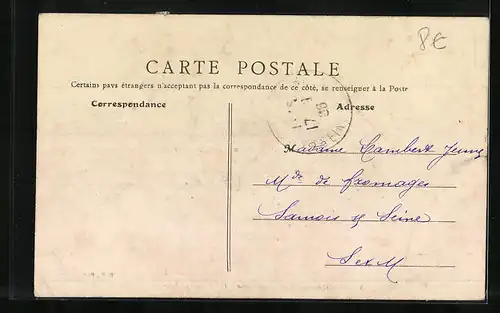 8€
CARTE POSTALE
Certains pays étrangers n'acceptant pas la correspondance de ce côté, se renseigner à la Poste
Correspondance
Adresse
Madame Lambert Jenny
Mde de fromages
Samois s/ Seine
S et M